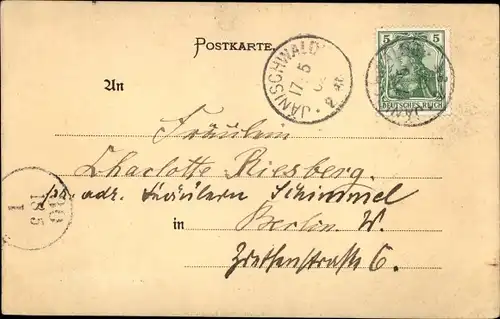 POSTKARTE.
JÄNISCHWALDE
17 5
2
5 5
DEUTSCHES REICH
An
Fräulein
Charlotte Riesberg.
adr. Fräulein Schimmel
18 5
1
in Berlin W.
Zietenstraße 6.